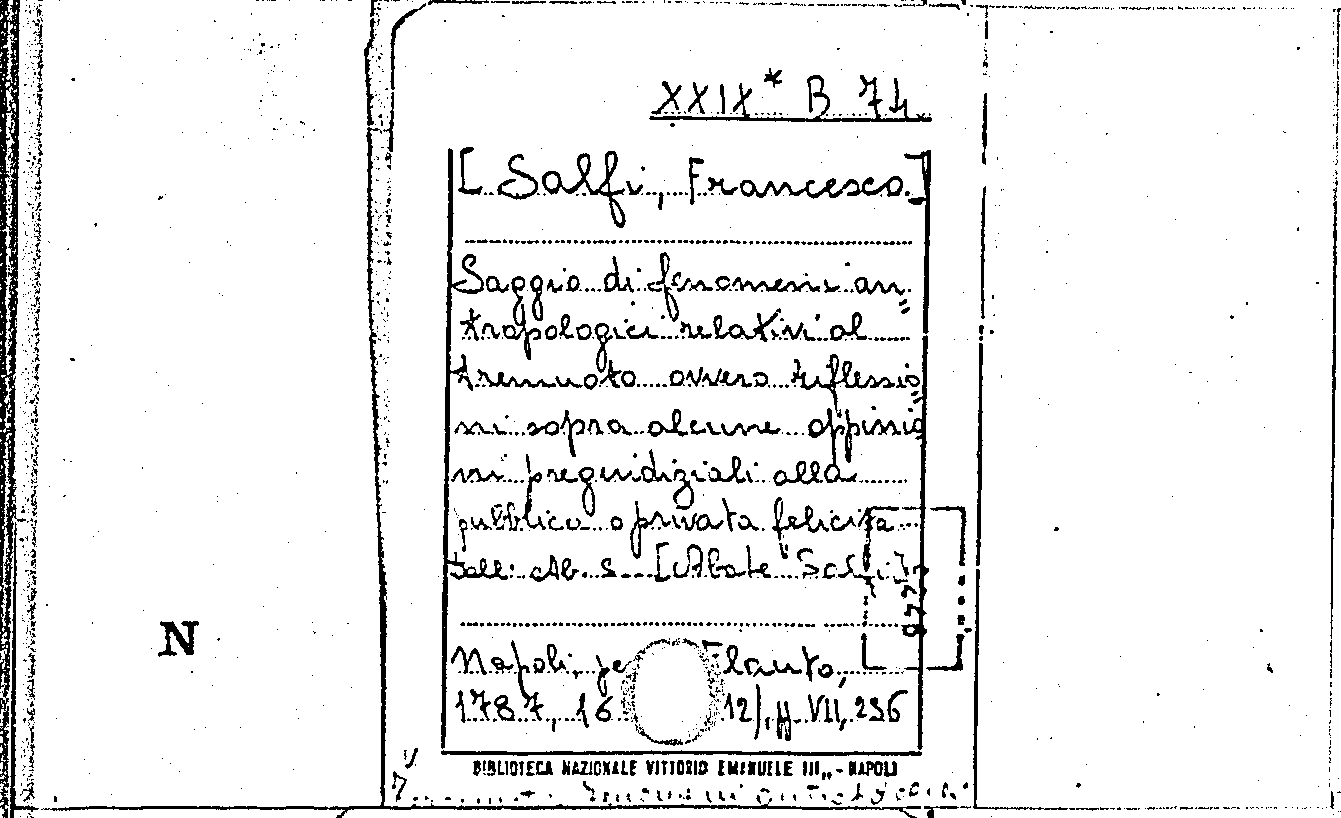 XXIX* B 74
[ Salfi, Francesco.]
Saggio di fenomeni an=
tropologici relativi al
tremuoto ovvero riflessio=
ni sopra alcune oppinio
ni pregiudiziali alla
pubblica o privata felicità
dell: Ab. S. [Abate Salfi]
N
Napoli, Flauto,
1787, 16 12), pp. VII, 236
BIBLIOTECA NAZIONALE VITTORIO EMANUELE III,, - NAPOLI